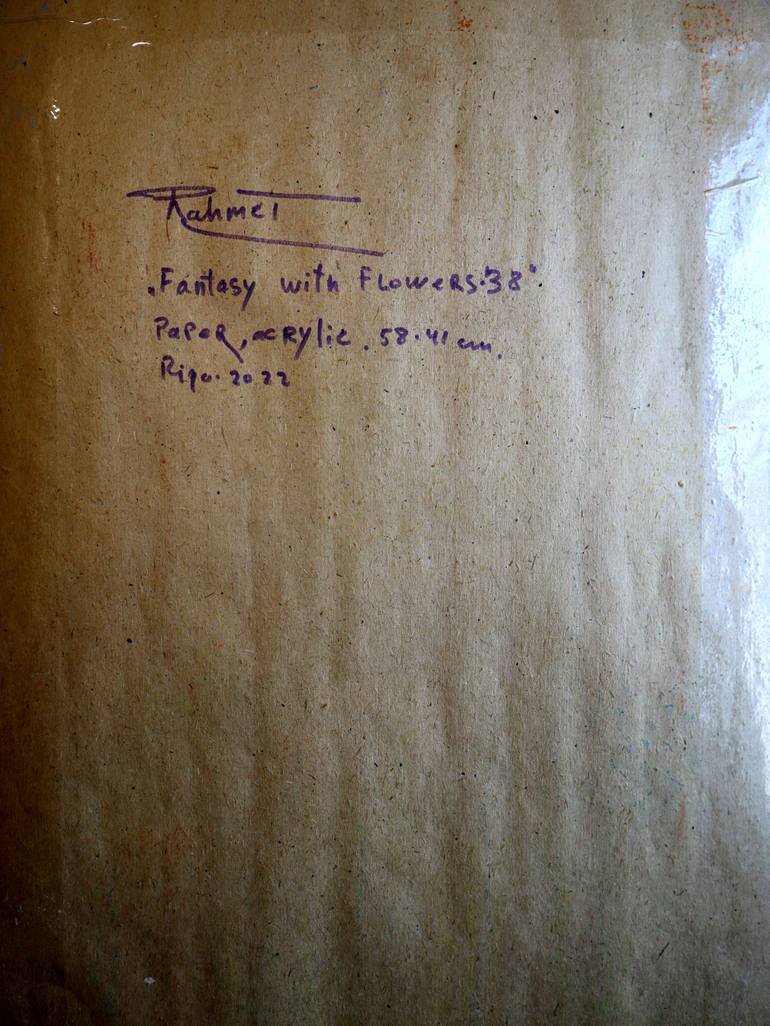 Rahmet
„Fantasy with Flowers.38"
Paper, acrylic. 58.41 cm.
Riga. 2022